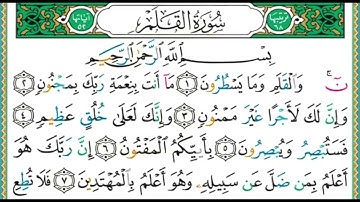 ترتيبها ٦٨ سُورَةُ القَلَمِ آياتها ٥٢
بِسْمِ اللَّهِ الرَّحْمَٰنِ الرَّحِيمِ
نٓ ۚ وَالْقَلَمِ وَمَا يَسْطُرُونَ ۝١ مَا أَنتَ بِنِعْمَةِ رَبِّكَ بِمَجْنُونٍ ۝٢
وَإِنَّ لَكَ لَأَجْرًا غَيْرَ مَمْنُونٍ ۝٣ وَإِنَّكَ لَعَلَىٰ خُلُقٍ عَظِيمٍ ۝٤
فَسَتُبْصِرُ وَيُبْصِرُونَ ۝٥ بِأَييِّكُمُ الْمَفْتُونُ ۝٦ إِنَّ رَبَّكَ هُوَ
أَعْلَمُ بِمَن ضَلَّ عَن سَبِيلِهِ وَهُوَ أَعْلَمُ بِالْمُهْتَدِينَ ۝٧ فَلَا تُطِعِ